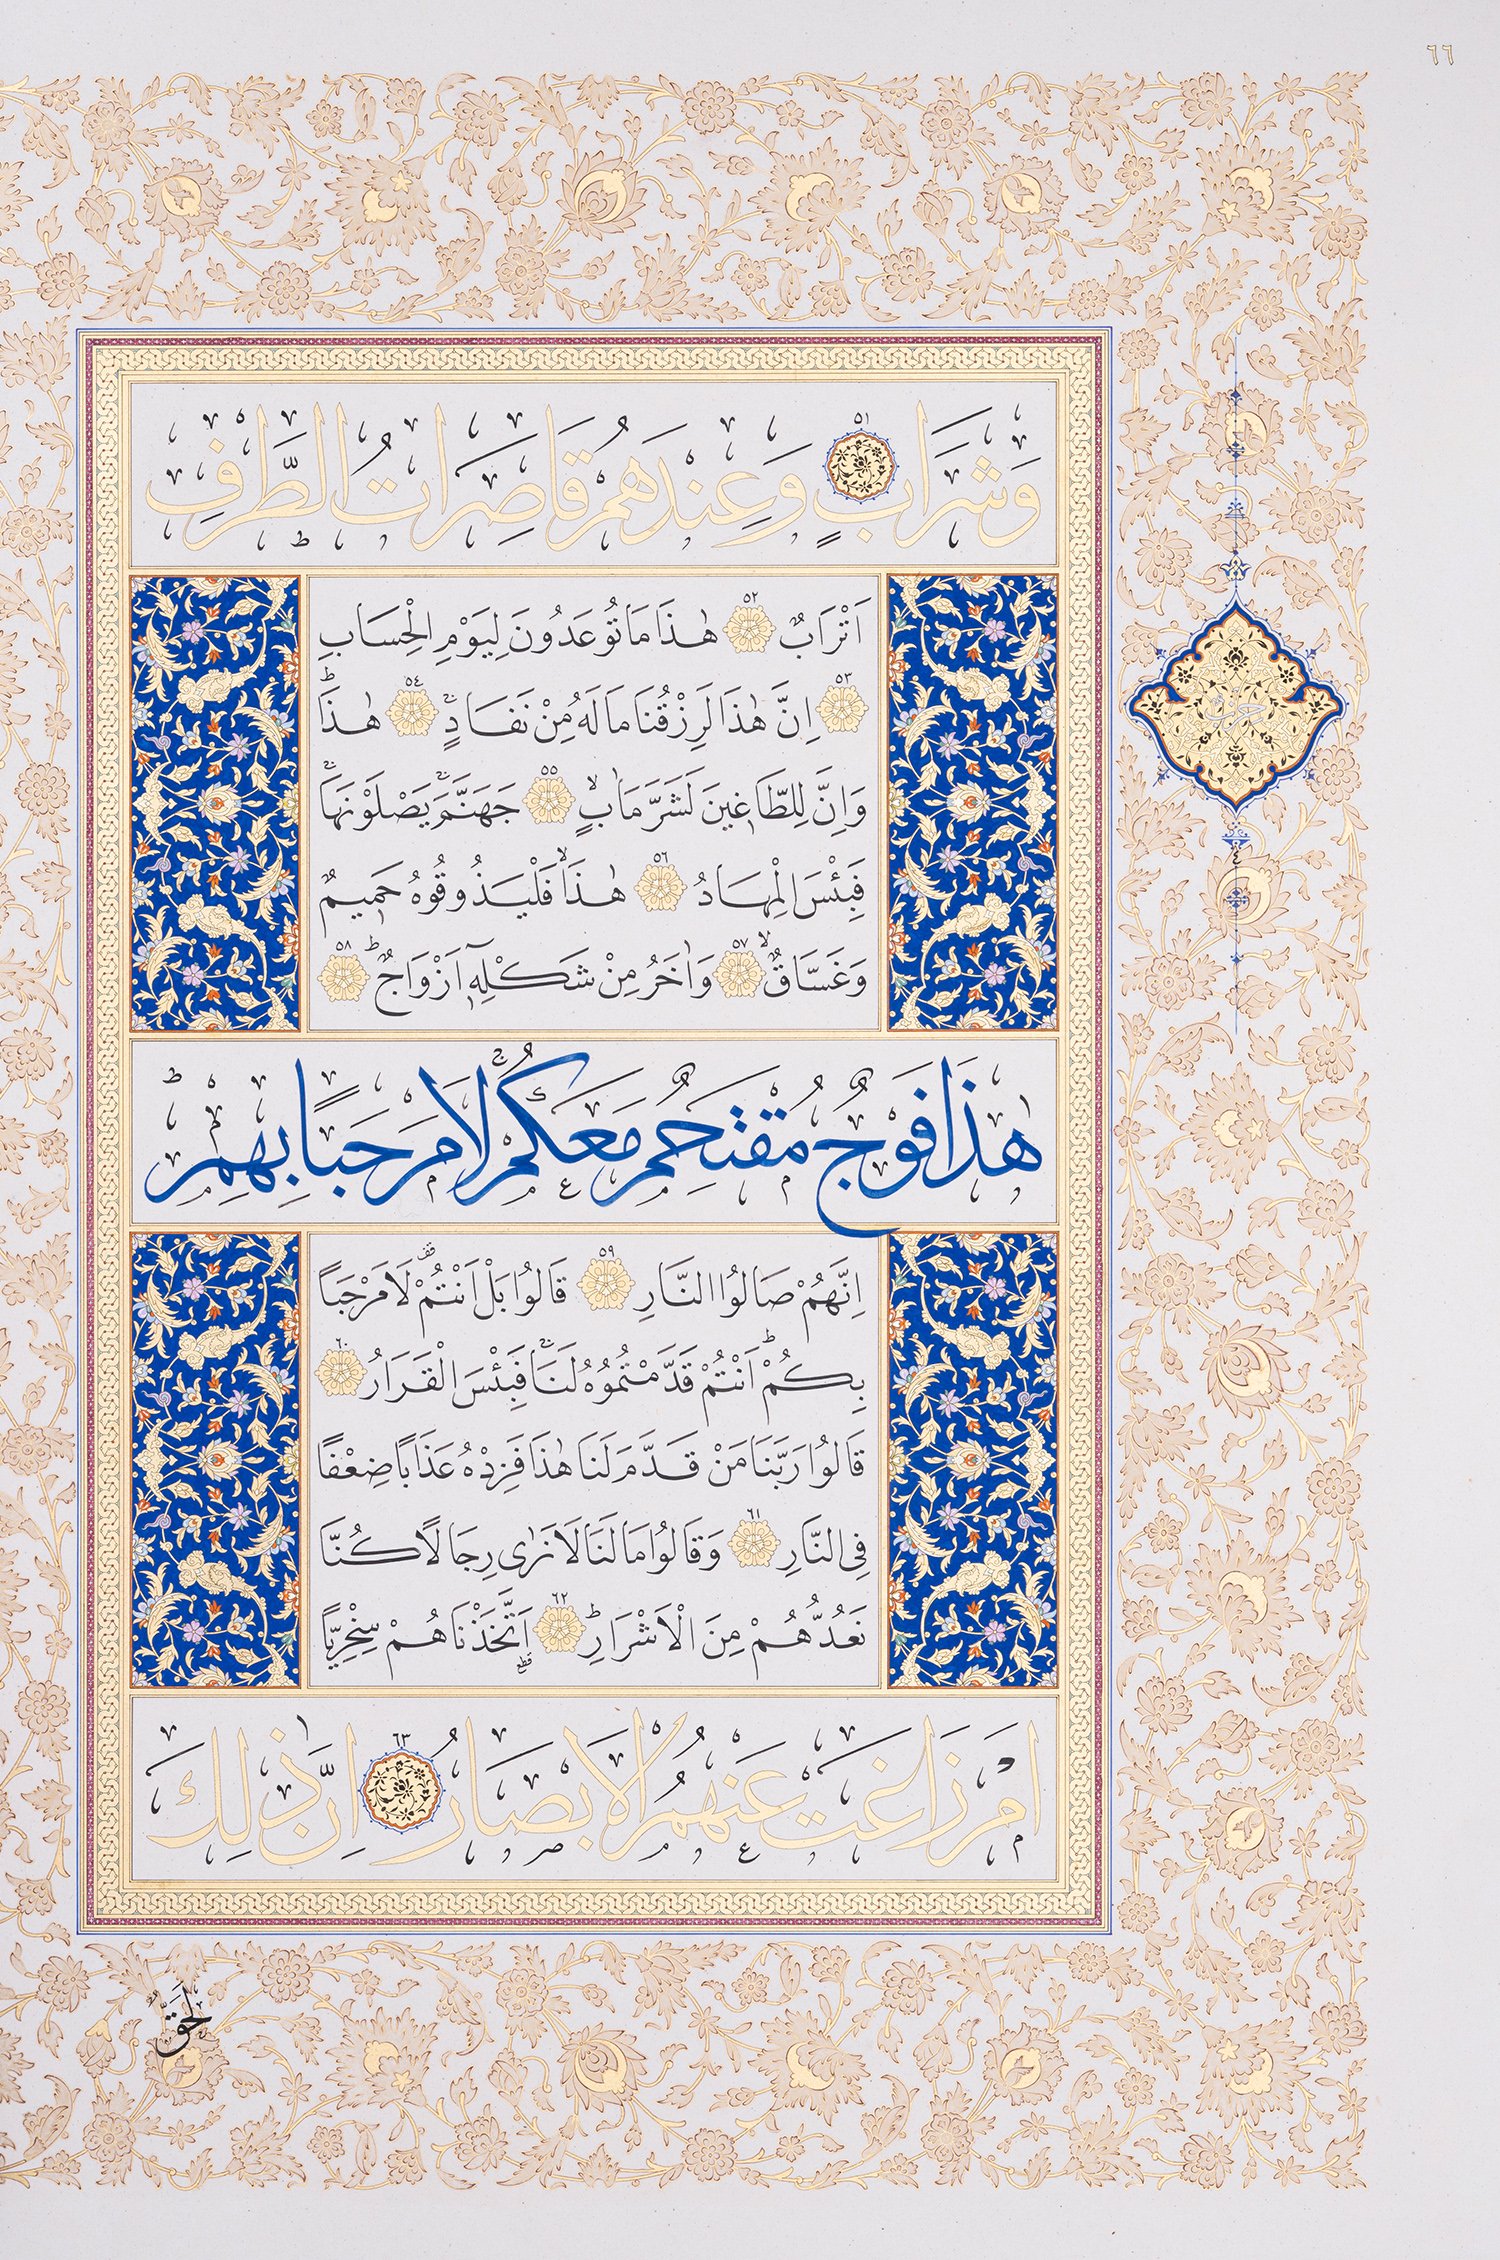 ٦٦
وَشَرَابٍ ٥١ وَعِنْدَهُمْ قَاصِرَاتُ الطَّرْفِ
اَتْرَابٌ ٥٢ هٰذَا مَا تُوعَدُونَ لِيَوْمِ الْحِسَابِ
٥٣ اِنَّ هٰذَا لَرِزْقُنَا مَا لَهُ مِنْ نَفَادٍۚ ٥٤ هٰذَاۜ
وَاِنَّ لِلطَّاغِينَ لَشَرَّ مَاٰبٍۙ ٥٥ جَهَنَّمَۚ يَصْلَوْنَهَاۚ
فَبِئْسَ الْمِهَادُ ٥٦ هٰذَاۙ فَلْيَذُوقُوهُ حَمِيمٌ
وَغَسَّاقٌۙ ٥٧ وَاٰخَرُ مِنْ شَكْلِهٖٓ اَزْوَاجٌۜ ٥٨
هٰذَا فَوْجٌ مُقْتَحِمٌ مَعَكُمْۚ لَا مَرْحَبًا بِهِمْۜ
اِنَّهُمْ صَالُوا النَّارِ ٥٩ قَالُوا بَلْ اَنْتُمْ۠ لَا مَرْحَبًا
بِكُمْۜ اَنْتُمْ قَدَّمْتُمُوهُ لَنَاۚ فَبِئْسَ الْقَرَارُ ٦٠
قَالُوا رَبَّنَا مَنْ قَدَّمَ لَنَا هٰذَا فَزِدْهُ عَذَابًا ضِعْفًا
فِي النَّارِ ٦١ وَقَالُوا مَا لَنَا لَا نَرٰى رِجَالًا كُنَّا
نَعُدُّهُمْ مِنَ الْاَشْرَارِۜ ٦٢ اَتَّخَذْنَاهُمْ سِخْرِيًّا
اَمْ زَاغَتْ عَنْهُمُ الْاَبْصَارُ ٦٣ اِنَّ ذٰلِكَ
لَحَقٌّ